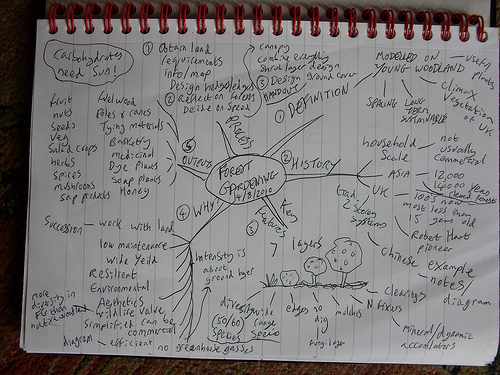 Carbohydrates
need Sun!
① Obtain land
requirements
info/map
Design hedges/edges
② Reflection on talents
Decide on species
canopy
combine everything
shrub layer design
③ Design ground cover
HANDOUT
Process
① DEFINITION
MODELLED ON
YOUNG WOODLAND
useful
plants
climax
vegetation of
UK
SPACING
LONG
TERM
SUSTAINABLE
② HISTORY
household
scale
not
usually
commercial
ASIA
12,000
UK
100's now
most less than
15 years old
Robert Hart
pioneer
Trad.
2 storey
systems
Chinese example
notes/
diagram
FOREST
GARDENING
14/8/2010
⑤ OUTPUTS
fruit
nuts
seeds
veg
salad crops
herbs
spices
mushrooms
soap products
Fuelwood
Poles & canes
Tying materials
Basketry
medicinal
Dye plants
Soap plants
Honey
④ WHY?
Succession - work with land
low maintenance
Wide Yeild
Resilient
Environmental
Aesthetics
Wildlife Value
more
diversity in
FG than
native woodland
Simplified can be
commercial
diagram - efficient
no greenhouse gasses
Intensity is
about
ground layer
③ Key
Features
7 layers
diversity
(50/60)
species
wide
range
species
edges
no
dig
mulches
N fixers
Clearings
Mineral/dynamic
accumulators